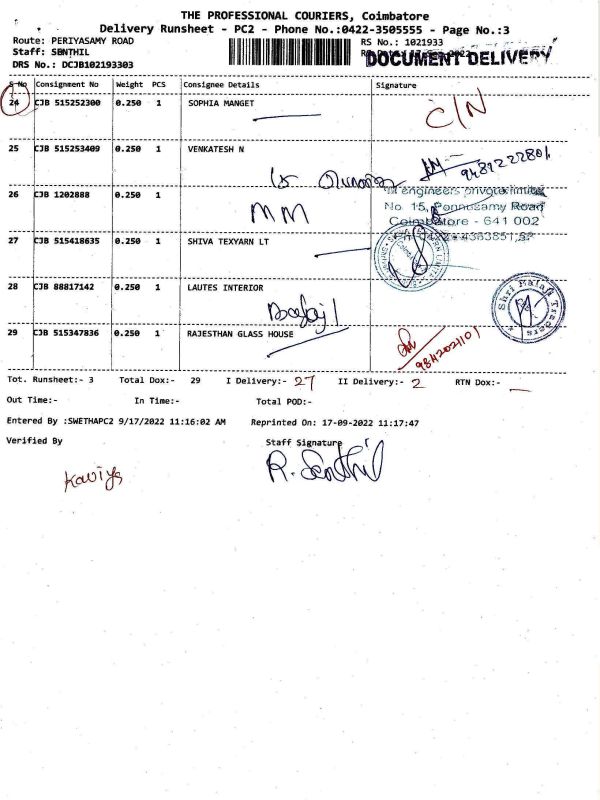 THE PROFESSIONAL COURIERS, Coimbatore
Delivery Runsheet - PC2 - Phone No.:0422-3505555 - Page No.:3
Route: PERIYASAMY ROAD
RS No.: 1021933
Staff: SENTHIL
DOCUMENT DELIVERY
DRS No.: DCJB102193303
S No Consignment No Weight PCS Consignee Details Signature
24 CJB 515252300 0.250 1 SOPHIA MANGET C/N
25 CJB 515253409 0.250 1 VENKATESH N
26 CJB 1202888 0.250 1 MM
engineers private limited
No. 15, Ponnusamy Road
Coimbatore - 641 002
27 CJB 515418635 0.250 1 SHIVA TEXYARN LT
28 CJB 88817142 0.250 1 LAUTES INTERIOR
Shri Balaji Traders
Balaji
29 CJB 515347836 0.250 1 RAJESTHAN GLASS HOUSE
Tot. Runsheet:- 3 Total Dox:- 29 I Delivery:- 27 II Delivery:- 2 RTN Dox:-
Out Time:- In Time:- Total POD:-
Entered By :SWETHAPC2 9/17/2022 11:16:02 AM Reprinted On: 17-09-2022 11:17:47
Verified By Staff Signature
Kaviya R. Senthil